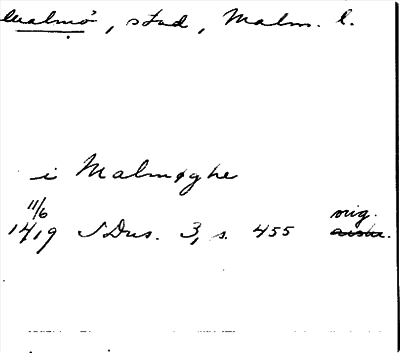 Malmö, stad, Malm. l.
i Malmøghe
11/6
1419 SDns. 3, s. 455 orig.